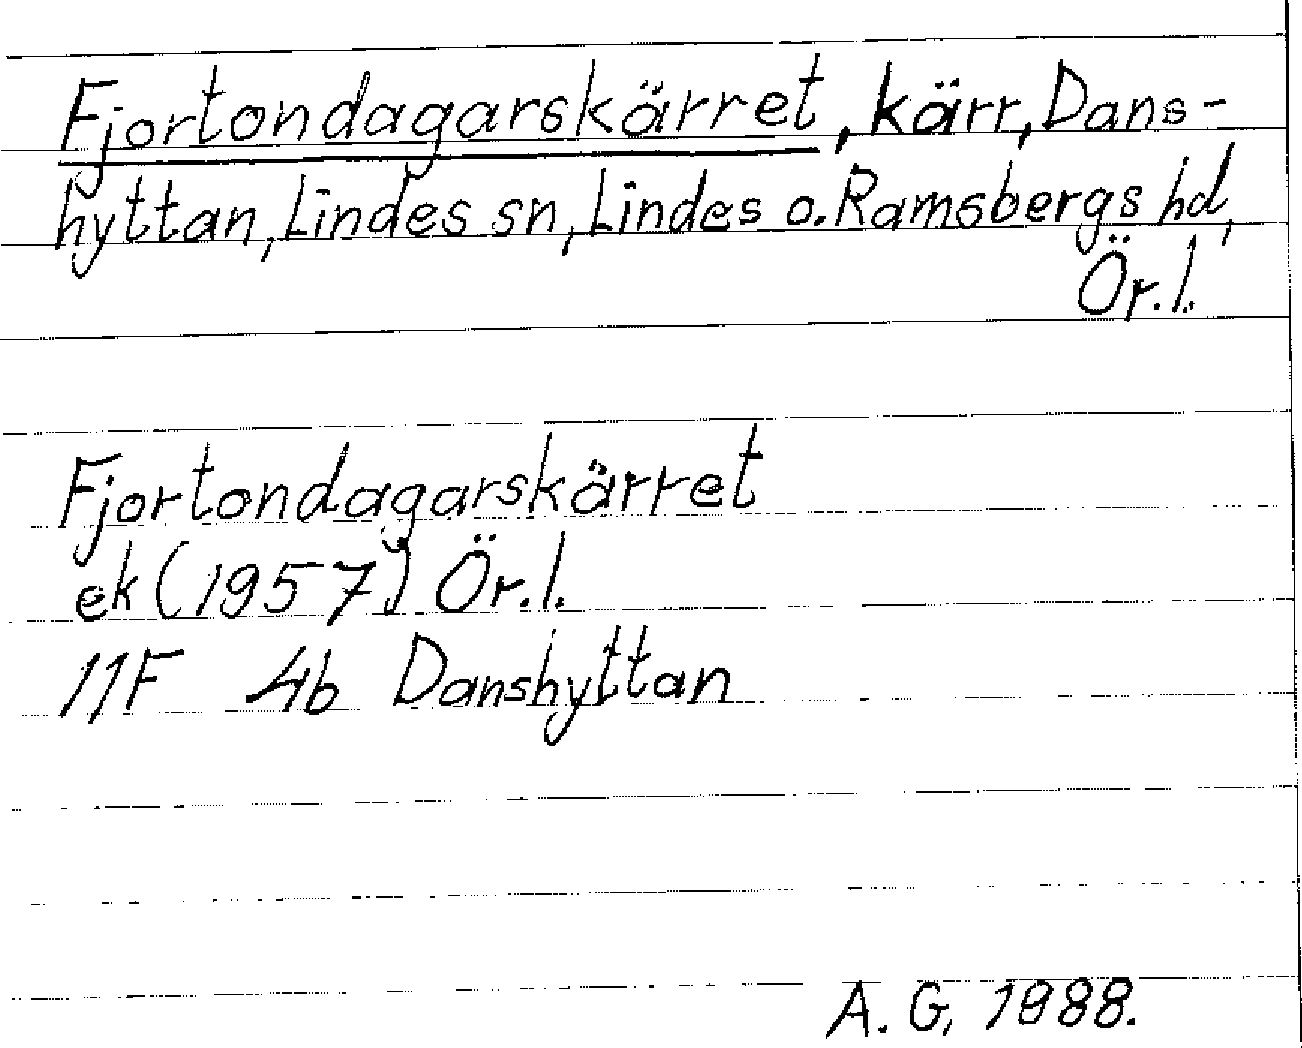 Fjortondagarskärret, kärr, Dans-
hyttan, Lindes sn, Lindes o. Ramsbergs hd,
Ör.l.
Fjortondagarskärret
ek (1957) Ör.l.
11F 4b Danshyttan
A. G, 1988.